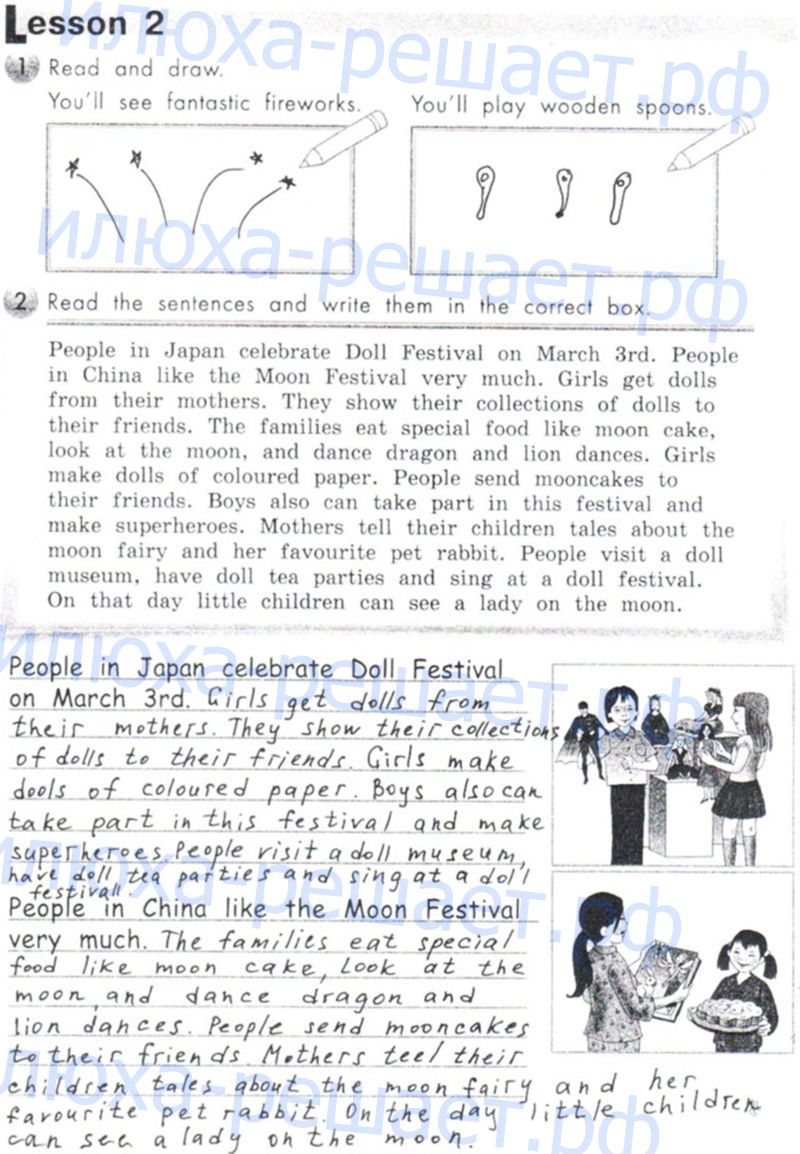 Lesson 2
илюха-решает.рф
1 Read and draw.
You'll see fantastic fireworks. You'll play wooden spoons.
илюха-решает.рф
2 Read the sentences and write them in the correct box.
People in Japan celebrate Doll Festival on March 3rd. People
in China like the Moon Festival very much. Girls get dolls
from their mothers. They show their collections of dolls to
their friends. The families eat special food like moon cake,
look at the moon, and dance dragon and lion dances. Girls
make dolls of coloured paper. People send mooncakes to
their friends. Boys also can take part in this festival and
make superheroes. Mothers tell their children tales about the
moon fairy and her favourite pet rabbit. People visit a doll
museum, have doll tea parties and sing at a doll festival.
On that day little children can see a lady on the moon.
илюха-решает.рф
People in Japan celebrate Doll Festival
on March 3rd. Girls get dolls from
their mothers. They show their collections
of dolls to their friends. Girls make
dools of coloured paper. Boys also can
take part in this festival and make
superheroes. People visit a doll museum,
have doll tea parties and sing at a doll
festivall.
илюха-решает.рф
People in China like the Moon Festival
very much. The families eat special
food like moon cake, look at the
moon, and dance dragon and
lion dances. People send mooncakes
to their friends. Mothers teel their
children tales about the moon fairy and her
favourite pet rabbit. On the day little children
can see a lady on the moon.
илюха-решает.рф